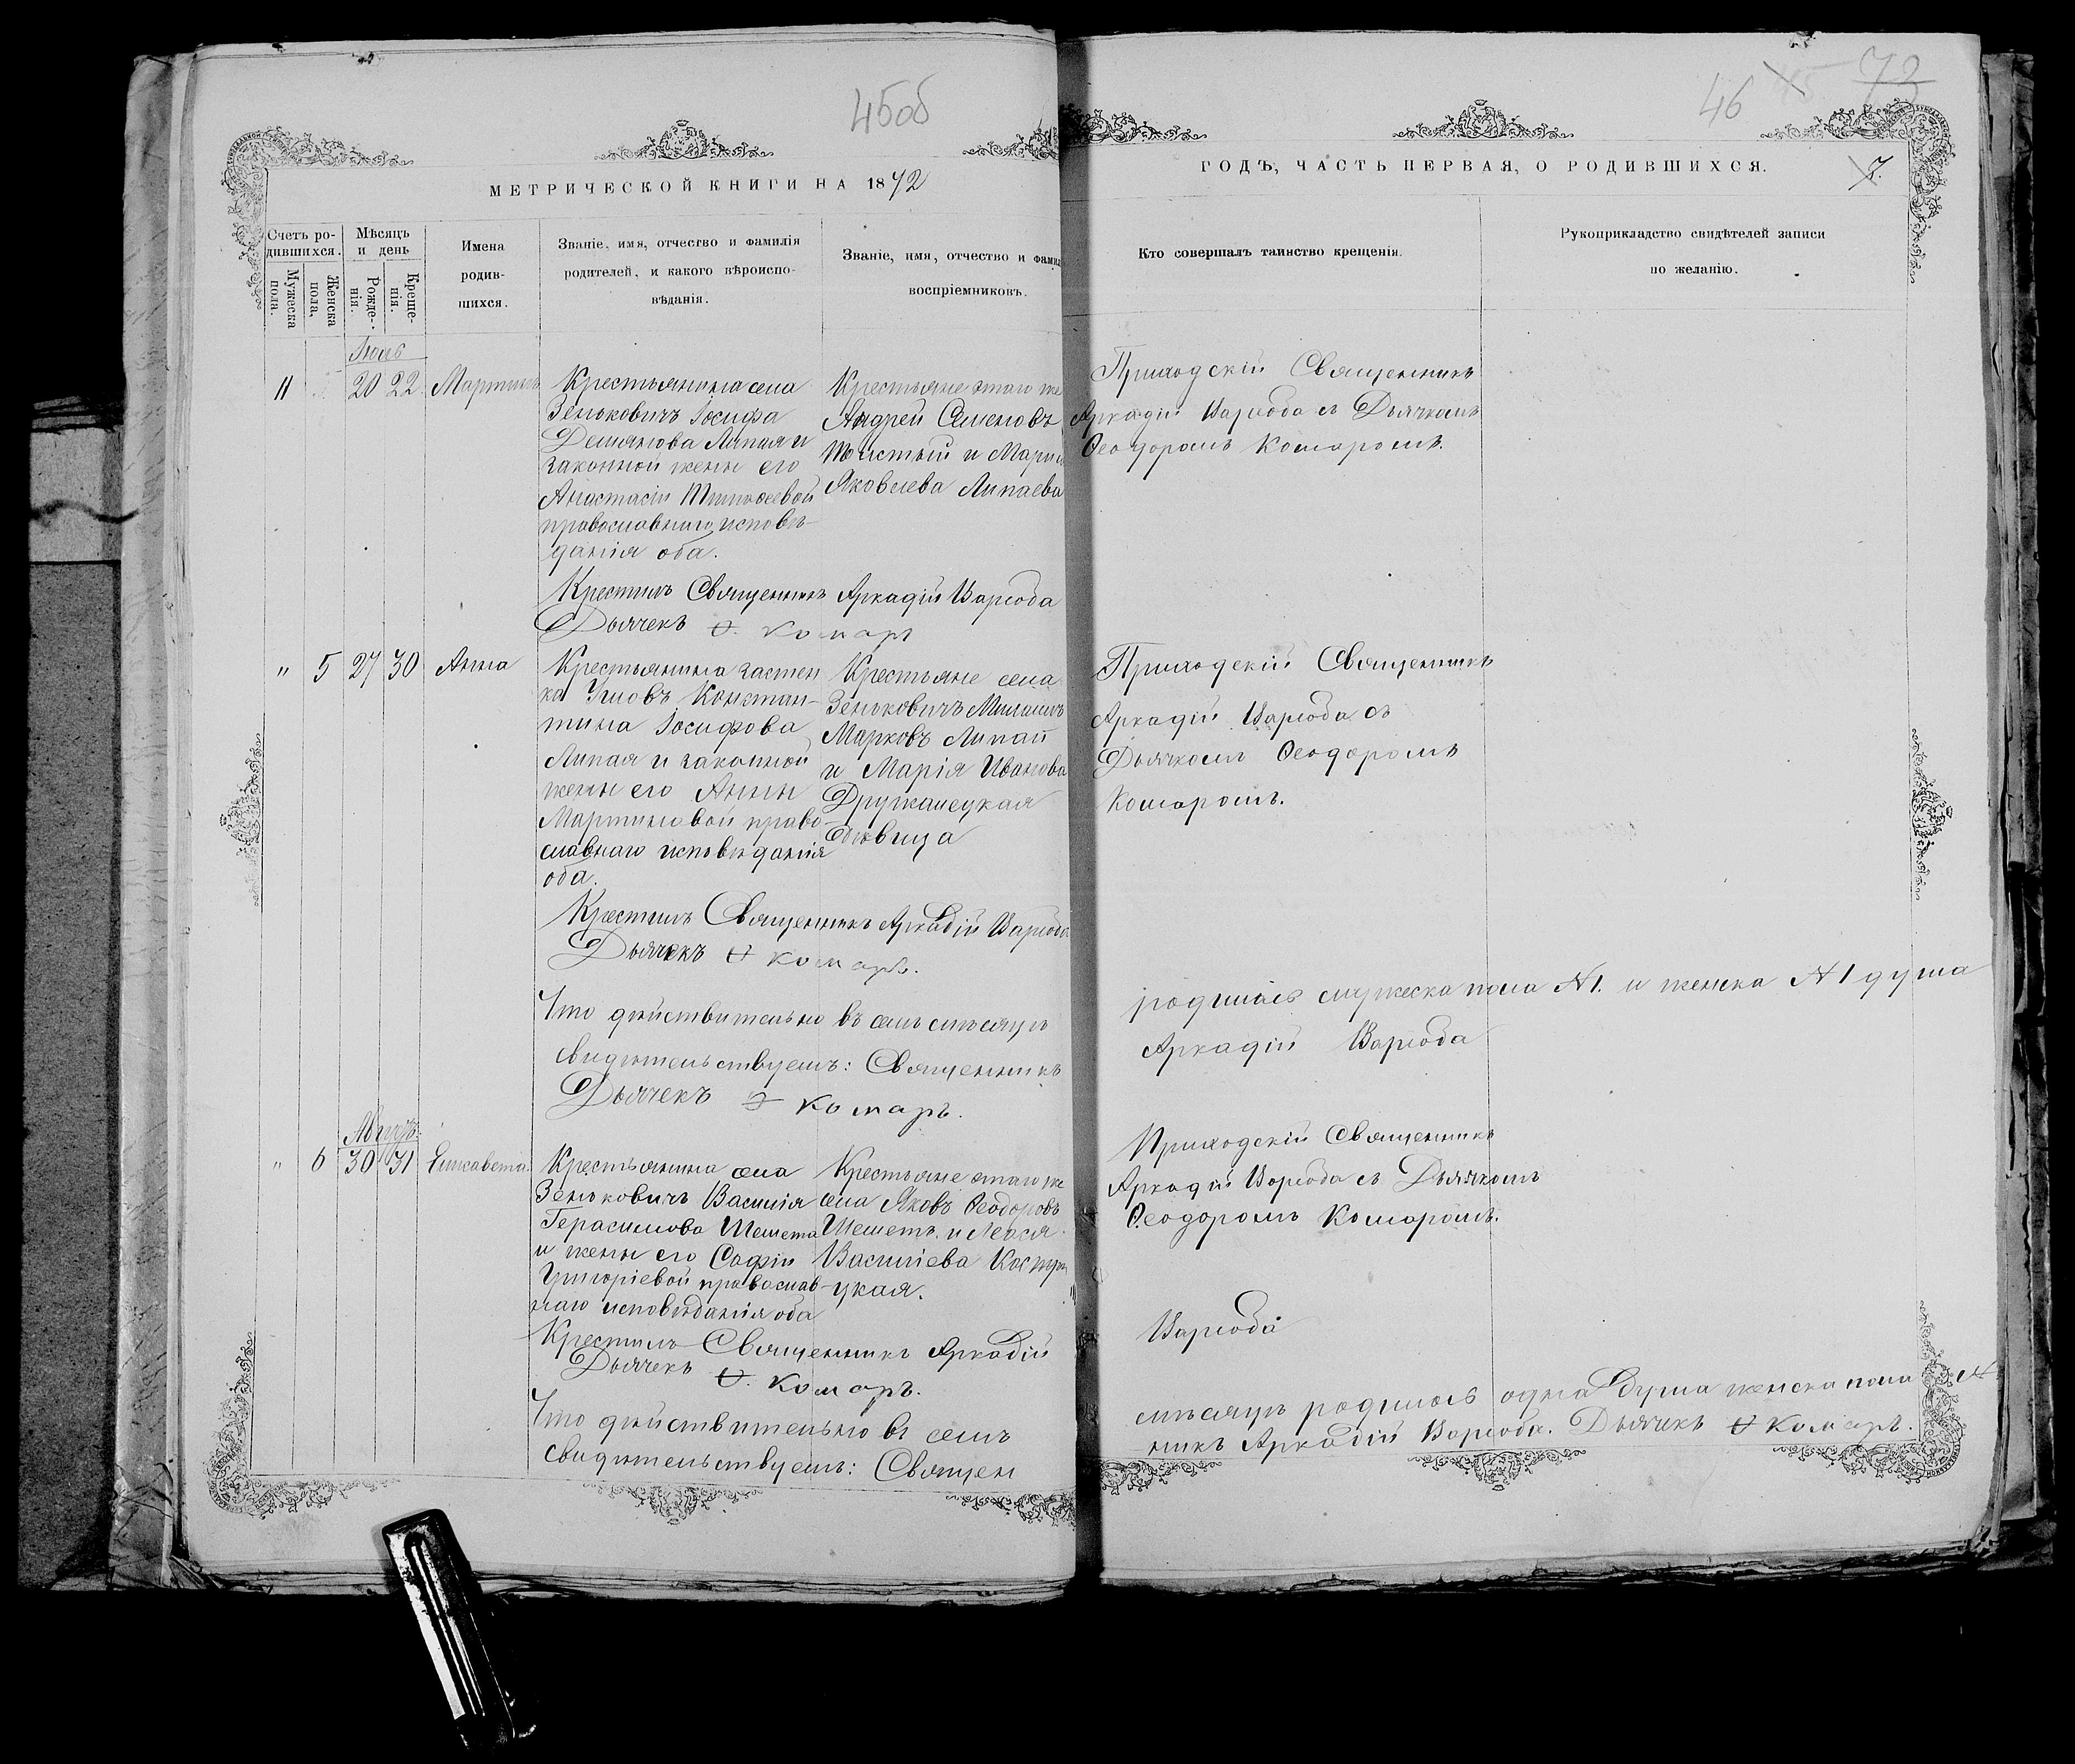 45об
МЕТРИЧЕСКОЙ КНИГИ НА 1872
Счетъ ро-
дившихся.
Мужеска
пола.
Женска
пола,
Мѣсяцъ
и день
Рожде-
нія.
Креще-
нія.
Имена
родив-
шихся.
Званіе, имя, отчество и фамилія
родителей, и какого вѣроиспо-
вѣданія.
Званіе, имя, отчество и фами
воспріемниковъ.
Іюль
11 20 22 Мартинъ
Крестьянина села
Зеньковичъ Іосифа
Демянова Липая и
законной жены его
Анастасіи Тимоѳеевой
православнаго исповѣ-
данія оба.
Крестьяне этаго же
Андрей Семеновъ
Толстый и Марія
Яковлева Липаева
Крестилъ Священникъ Аркадій
Дьячекъ Ѳ. Комаръ
" 5 27 30 Анна
Крестьянина застен
ка Константина Іосифова
Липая и законной
жены его Анны
Мартиновой право-
славнаго исповѣданія
оба.
Крестьяне села
Зеньковичъ
Марковъ Липай
и Марія Иванова
вдовица
Крестилъ Священникъ Аркадій
Дьячекъ Ѳ Комаръ.
Что дѣйствительно въ семъ мѣсяцѣ
свидѣтельствуемъ: Священникъ
Дьячекъ Ѳ Комаръ.
Августъ
" 6 30 31 Елисавета
Крестьянина села
Зеньковичъ Василія
Герасимова Шемета
и жены его Софіи
Григоріевой православ-
наго исповѣданія оба
Крестьяне этаго же
села Яковъ Ѳеодоровъ
Шеметъ и
Василіева
цкая.
Крестилъ Священникъ Аркадій
Дьячекъ Ѳ. Комаръ.
Что дѣйствительно въ семъ
свидѣтельствуемъ: Священ
46 45 73
ГОДЪ, ЧАСТЬ ПЕРВАЯ, О РОДИВШИХСЯ.
7.
Кто совершалъ таинство крещенія.
Рукоприкладство свидѣтелей записи
по желанію.
Приходскій Священникъ
Аркадій съ Дьячкомъ
Ѳеодоромъ Комаромъ.
Приходскій Священникъ
Аркадій съ
Дьячкомъ Ѳеодоромъ
Комаромъ.
родилось мужеска пола №1. и женска №1 душа
Аркадій
Приходскій Священникъ
Аркадій съ Дьячкомъ
Ѳеодоромъ Комаромъ.
мѣсяцѣ родилось одна душа женска пола
никъ Аркадій Дьячекъ Ѳ Комаръ.